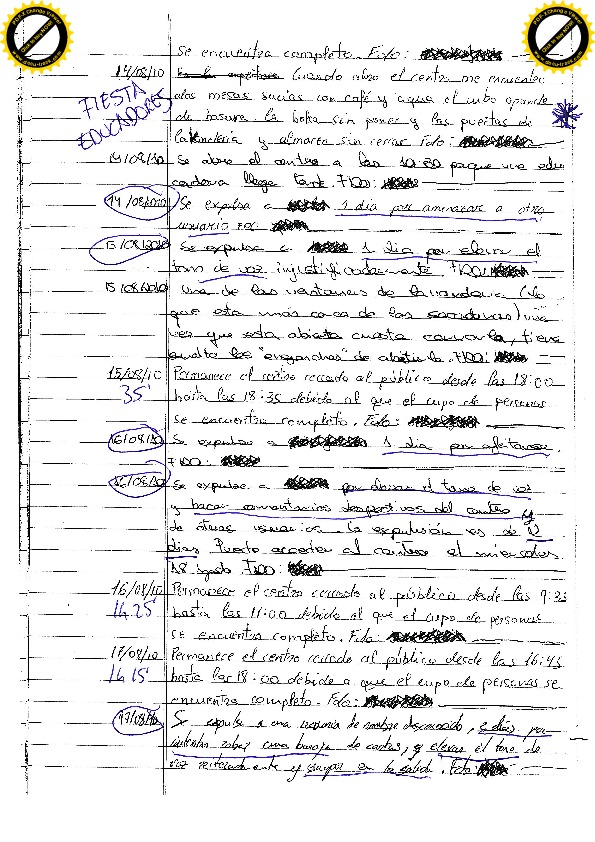 se encuentra completo. Fdo:
14/08/10 Cuando abro el centro me encuentro
FIESTA EDUCADORES
dos mesas sucias con café y agua el cubo aparte
de basura. la bolsa sin poner y las puertas de
lavandería y almacén sin cerrar Fdo:
14/08/10 Se abre el centro a las 10:30 porque una edu
cadora llega tarde. FDO:
14/08/2010 Se expulsa a 1 día por amenazar a otro
usuario FDO:
15/08/2010 Se expulsa a 1 día por elevar el
tono de voz injustificadamente. FDO:
15/08/2010 Una de las ventanas de lavandería (la
que está más cerca de las secadoras) una
vez que está abierta cuesta cerrarla, tiene
los "enganches" de abatirla. FDO:
15/08/10 Permanece el centro cerrado al público desde las 18:00
35' hasta las 18:35 debido al que el cupo de personas
se encuentra completo. Fdo:
16/08/10 Se expulsa a 1 día por
FDO:
16/08/10 Se expulsa a por elevar el tono de voz
y hacer comentarios despectivos del centro y
de otros usuarios la expulsión es de 2
días. Puede acceder al centro el miércoles
18 agosto FDO:
16/08/10 Permanece el centro cerrado al público desde las 9:35
1h 25' hasta las 11:00 debido al que el cupo de personas
se encuentra completo. Fdo:
17/08/10 Permanece el centro cerrado al público desde las 16:45
1h 15' hasta las 18:00 debido a que el cupo de personas se
encuentra completo. Fdo:
17/08/10 Se expulsa a una usuaria de nombre desconocido, 3 días por
intentar robar una baraja de cartas, y elevar el tono de
voz reiteradamente y en la salida. Fdo: